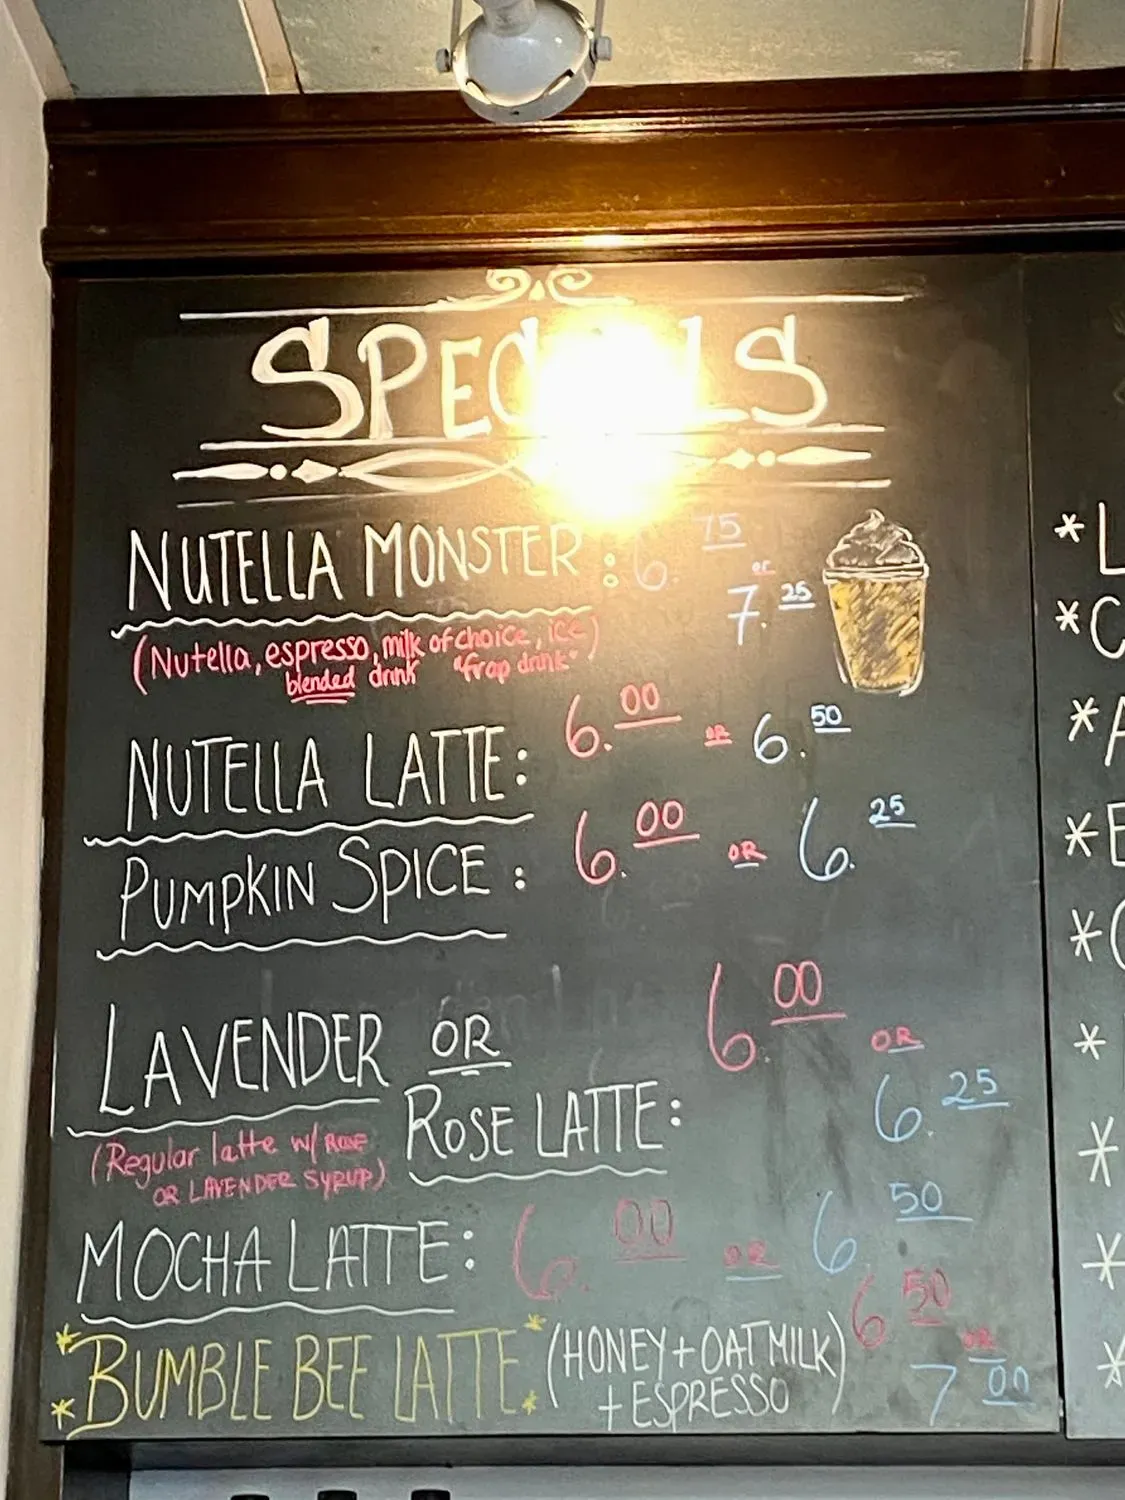 SPECIALS
NUTELLA MONSTER : 6.75
or
7.25
(Nutella, espresso, milk of choice, ice)
blended drink "frap drink"
NUTELLA LATTE: 6.00 OR 6.50
PUMPKIN SPICE : 6.00 OR 6.25
LAVENDER OR 6.00
OR
ROSE LATTE: 6.25
(Regular latte w/ ROSE
OR LAVENDER SYRUP)
MOCHA LATTE: 6.00 OR 6.50
*BUMBLE BEE LATTE* (HONEY + OATMILK) 6.50
OR
* * + ESPRESSO 7.00
* L
* C
* A
* E
*
*
*
*
*